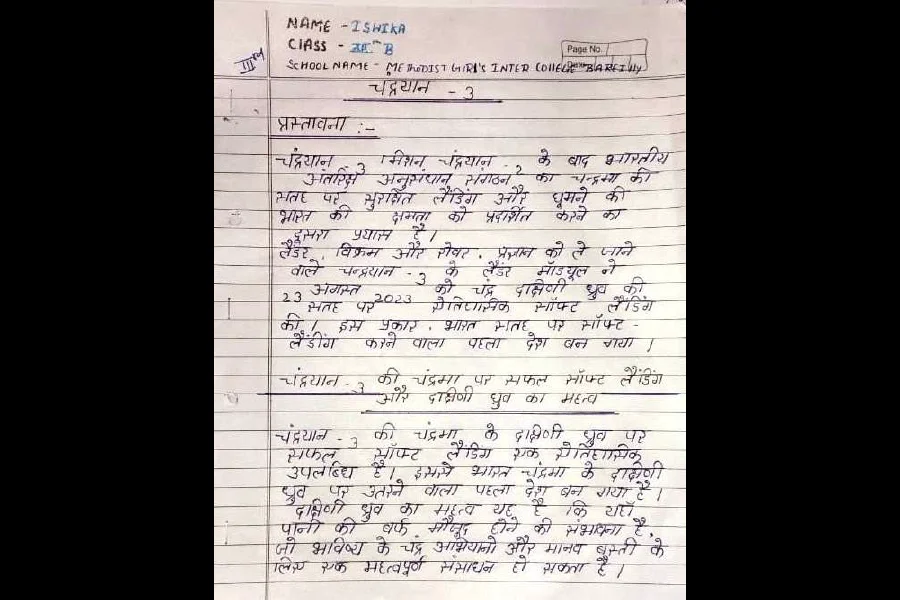 NAME - ISHIKA
CLASS - IXth B
IIIrd
Page No.
SCHOOL NAME - METHODIST GIRL'S INTER COLLEGE BAREILLY
चंद्रयान - 3
प्रस्तावना :-
चंद्रयान - 3 मिशन चंद्रयान - 2 के बाद भारतीय
अंतरिक्ष अनुसंधान संगठन का चन्द्रमा की
सतह पर सुरक्षित लैंडिंग और घूमने की
भारत की क्षमता को प्रदर्शित करने का
दूसरा प्रयास है।
लैंडर, विक्रम और रोवर, प्रज्ञान को ले जाने
वाले चन्द्रयान - 3 के लैंडर मॉड्यूल ने
23 अगस्त 2023 को चंद्र दक्षिणी ध्रुव की
सतह पर ऐतिहासिक सॉफ्ट लैंडिंग
की। इस प्रकार, भारत सतह पर सॉफ्ट -
लैंडिंग करने वाला पहला देश बन गया।
चंद्रयान - 3 की चंद्रमा पर सफल सॉफ्ट लैंडिंग
और दक्षिणी ध्रुव का महत्व
चंद्रयान - 3 की चंद्रमा के दक्षिणी ध्रुव पर
सफल सॉफ्ट लैंडिंग एक ऐतिहासिक
उपलब्धि है। इससे भारत चंद्रमा के दक्षिणी
ध्रुव पर उतरने वाला पहला देश बन गया है।
दक्षिणी ध्रुव का महत्व यह है कि यहाँ
पानी की बर्फ मौजूद होने की संभावना है,
जो भविष्य के चंद्र अभियानो और मानव बस्ती के
लिए एक महत्वपूर्ण संसाधन हो सकता है।